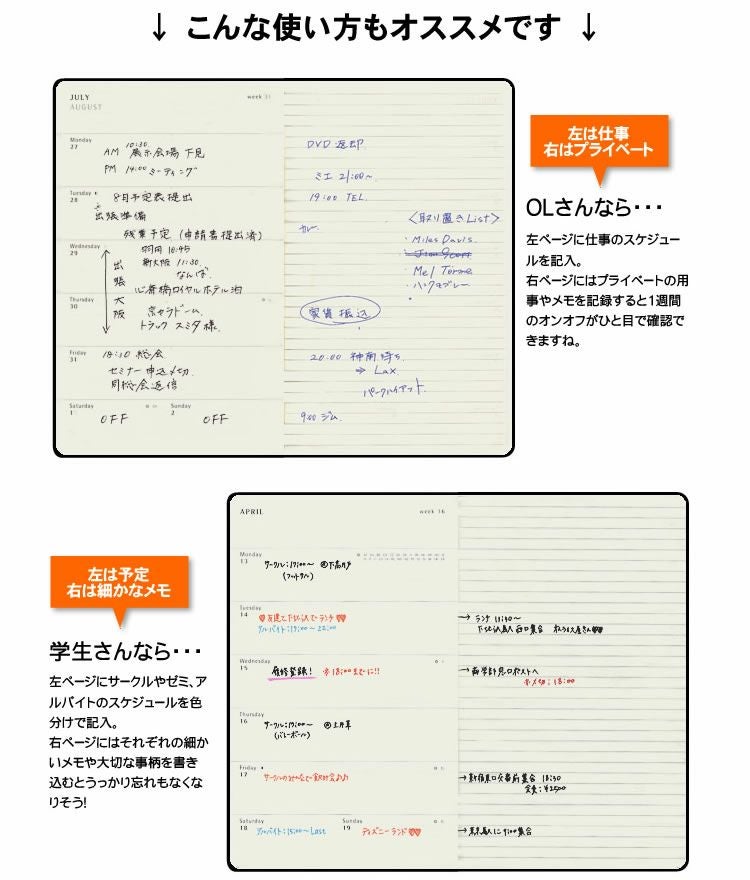 ↓ こんな使い方もオススメです ↓
JULY
AUGUST
week 31
Monday
27
10:30
AM 展示会場 下見
PM 14:00 ミーティング
Tuesday
28
8月予定表提出
出張準備
残業予定 (申請書提出済)
Wednesday
29
羽田 10:45
新大阪 11:30
なんば
心斎橋ロイヤルホテル泊
出張 大阪
Thursday
30
京セラドーム
トラック スミダ様
Friday
31
18:10 総会
セミナー申込〆切
同総会返信
Saturday
1
OFF
Sunday
2
OFF
DVD 返却
ミエ 21:00~
19:00 TEL
<取り置きList>
・Miles Davis
・Mel Torme
家賃振込
20:00 神南待ち
⇒ Lax
パークハイアット
9:00 ジム
左は仕事
右はプライベート
OLさんなら・・・
左ページに仕事のスケジュー
ルを記入。
右ページにはプライベートの用
事やメモを記録すると1週間
のオンオフがひと目で確認で
きますね。
左は予定
右は細かなメモ
学生さんなら・・・
左ページにサークルやゼミ、ア
ルバイトのスケジュールを色
分けで記入。
右ページにはそれぞれの細か
いメモや大切な事柄を書き
込むとうっかり忘れもなくな
りそう!
APRIL
week 16
Monday
13
サークル:19:00~ @下高井戸
(フットサル)
Tuesday
14
♡友達と下北沢でランチ♡♡
アルバイト:17:00~22:00
Wednesday
15
履修登録! ※18:00までに!!
Thursday
16
サークル:19:00~
(バレーボール)
Friday
17
サークルのみんなで飲み会♪♪
Saturday
18
アルバイト:15:00~Last
Sunday
19
ディズニーランド♡♡
→ ランチ 11:30~
下北沢駅南口集合
※〆切:18:00
→ 新宿東口交番前集合 18:30
会費:¥2500
→ 東京駅に9:00集合